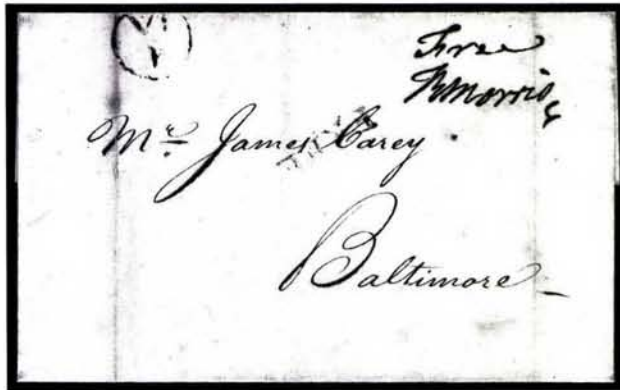 Free
RMorris
Mr James Carey
Baltimore